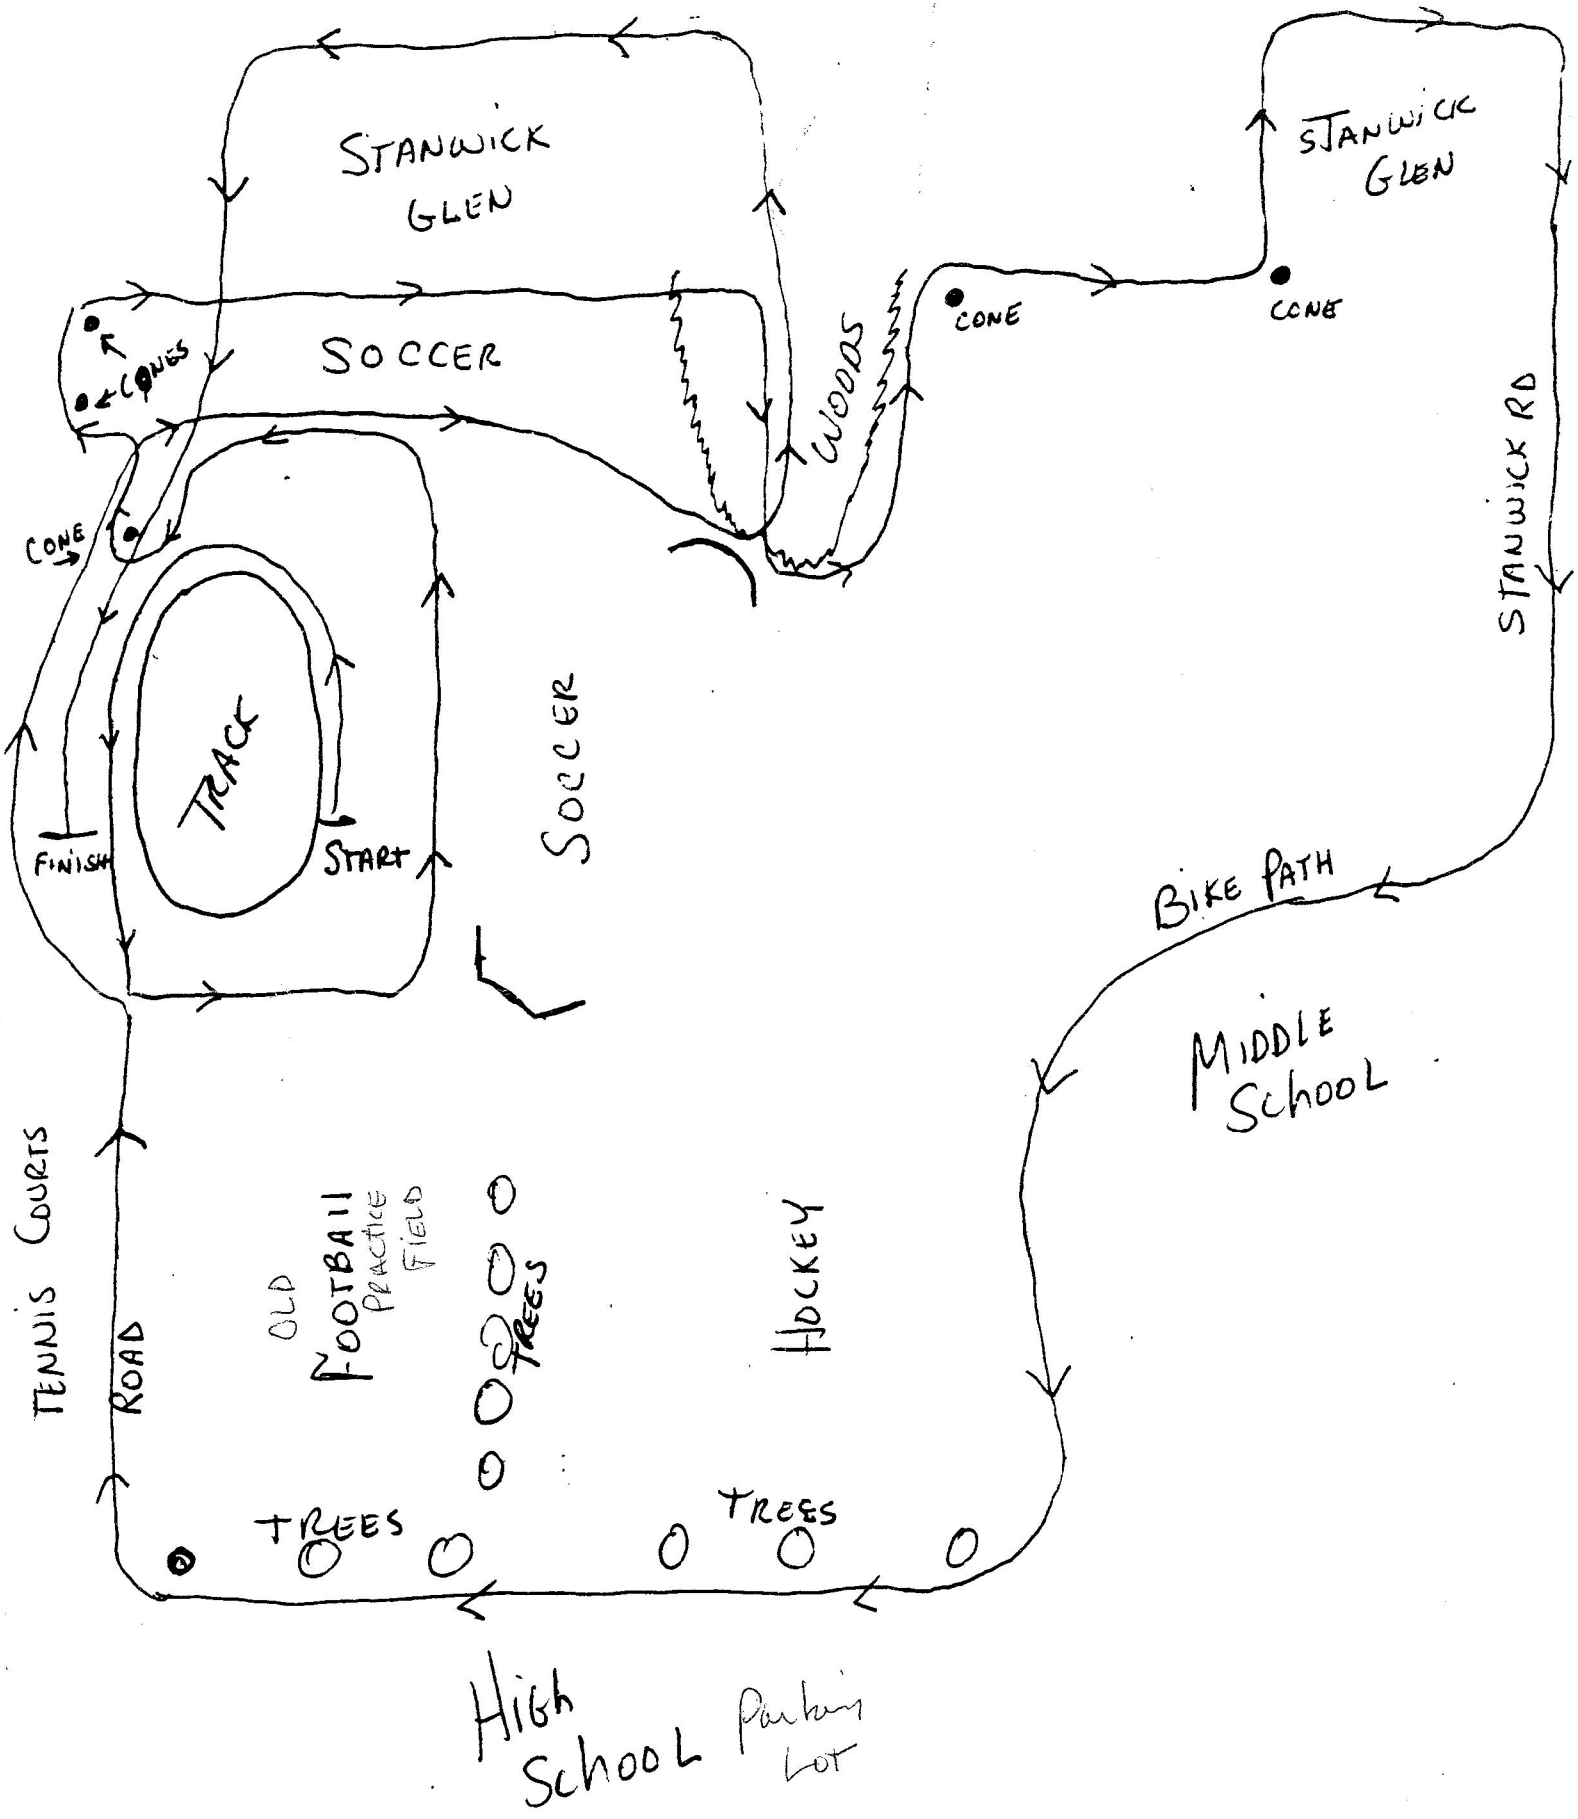 STANWICK
GLEN
STANWICK
GLEN
CONES
SOCCER
WOODS
CONE
CONE
STANWICK RD
CONE
TRACK
SOCCER
FINISH
START
BIKE PATH
MIDDLE
SCHOOL
TENNIS COURTS
ROAD
OLD
FOOTBALL
PRACTICE
FIELD
TREES
HOCKEY
TREES
TREES
HIGH
SCHOOL
Parking
Lot